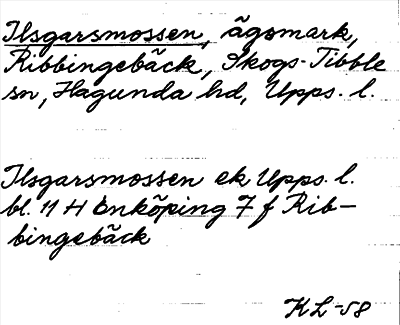 Ilsgarsmossen, ägomark,
Ribbingebäck, Skogs-Tibble
sn, Hagunda hd, Upps. l.
Ilsgarsmossen ek Upps. l.
bl. 11 H Enköping 7 f Rib-
bingebäck
KL-58